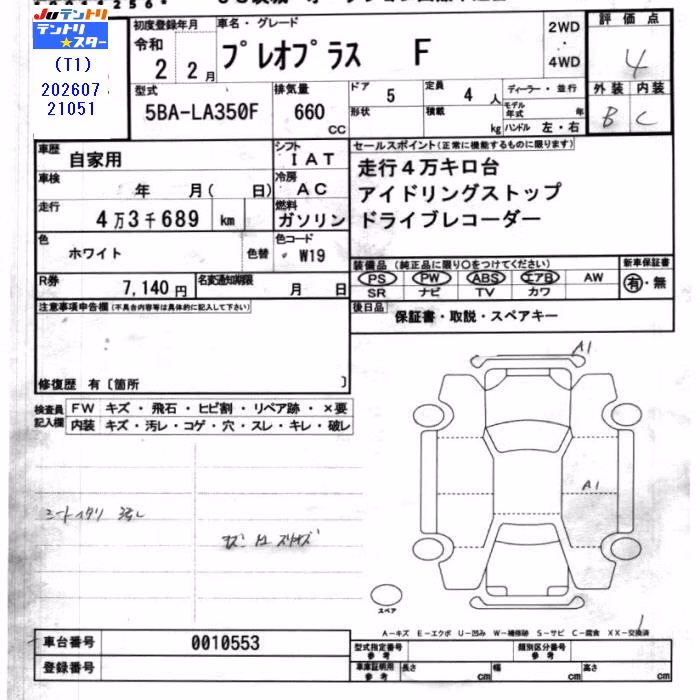 JUテントリ
テントリ★スター
(T1)
202607
21051
初度登録年月 車名・グレード 2WD
・
4WD 評価点
令和
2 2月 プレオプラス F 4
型式 排気量 ドア 定員 ディーラー・並行 外装 内装
5BA-LA350F 660 CC 5 4人 B C
形状 積載 kg モデル年式 年
ハンドル 左・右
車歴 自家用 シフト IAT
車検 年 月( 日) 冷房 AC
走行 4万3千689 km 燃料 ガソリン
色 ホワイト 色替 色コード W19
R券 7,140円 名変通知期限 月 日
セールスポイント(正常に機能するものに限ります)
走行4万キロ台
アイドリングストップ
ドライブレコーダー
装備品 (純正品に限り○をつけてください) 新車保証書
PS PW ABS エアB AW 有・無
SR ナビ TV カワ
後日品 保証書・取説・スペアキー
注意事項申告欄 (不具合内容等は具体的に記入して下さい)
修復歴 有〔箇所 〕
検査員記入欄 FW キズ・飛石・ヒビ割・リペア跡・×要
内装 キズ・汚レ・コゲ・穴・スレ・キレ・破レ
A1
A1
スペア
A-キズ E-エクボ U-凹み W-補修跡 S-サビ C-腐食 XX-交換済
車台番号 0010553
登録番号
型式指定番号 参考 類別区分番号 参考
車庫証明用 参考 長さ cm 幅 cm 高さ cm